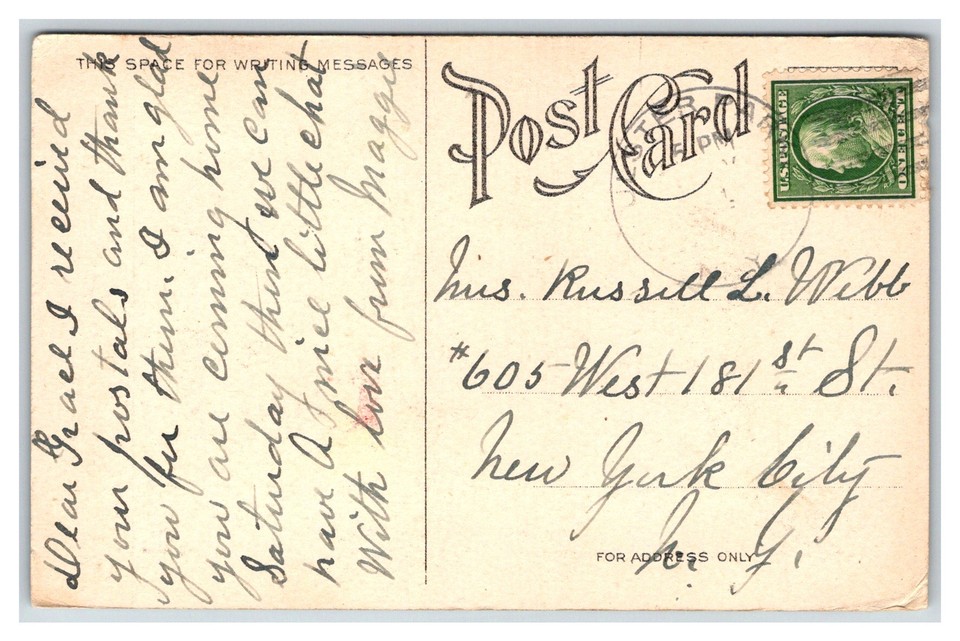 THIS SPACE FOR WRITING MESSAGES
Dear Grace I received
your postals and thank
you for them. I am glad
you are coming home
Saturday then we can
have A nice little chat
With love from Maggie
Post Card
U.S. POSTAGE
Mrs. Russell L. Webb
#605 West 181st St.
New York City
N. Y.
FOR ADDRESS ONLY